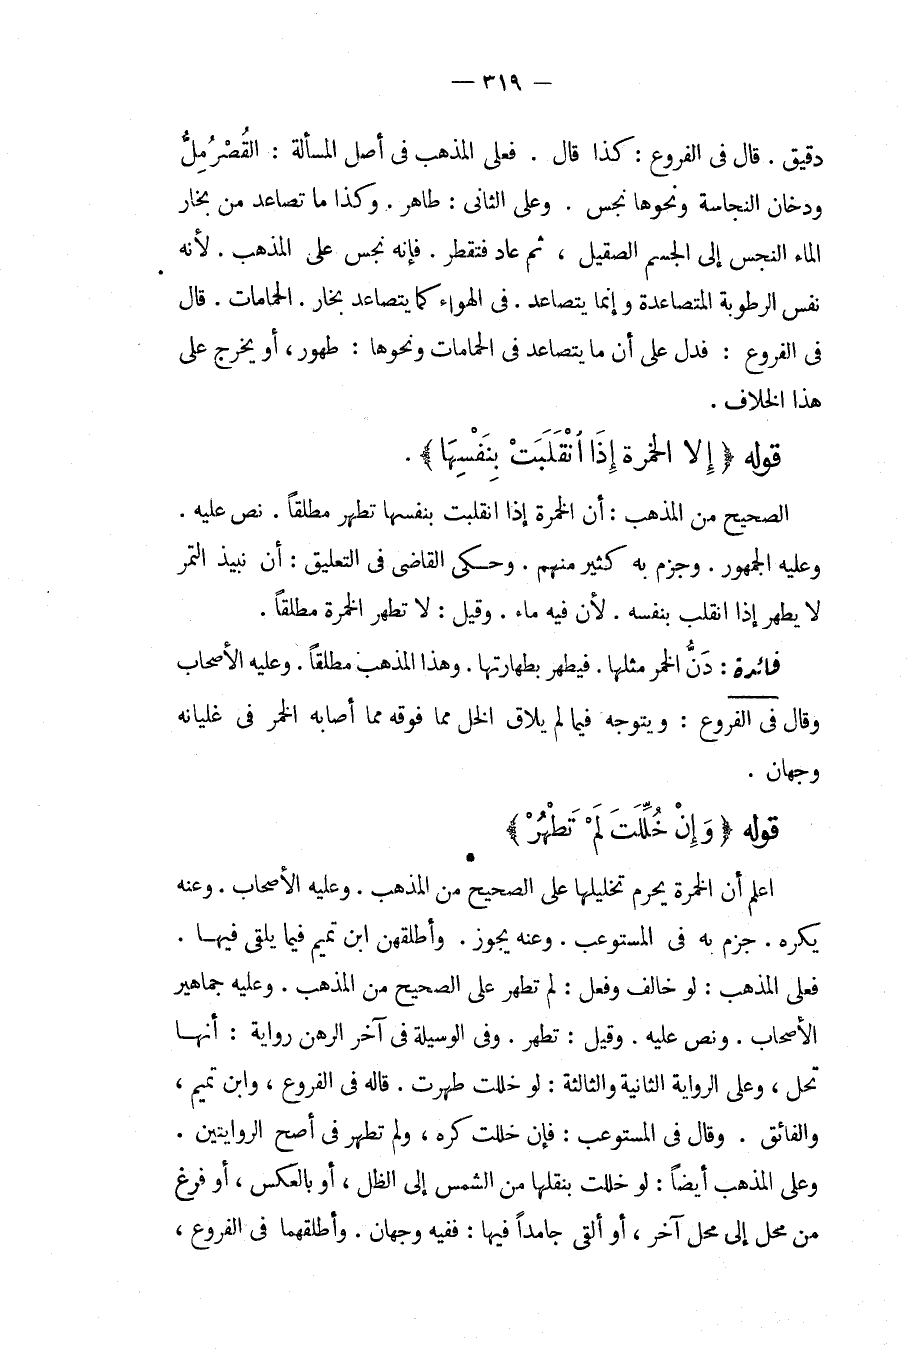 — ٣١٩ —
دقيق . قال فى الفروع : كذا قال . فعلى المذهب فى أصل المسألة : القُصْرُمِلُّ
ودخان النجاسة ونحوها نجس . وعلى الثانى : طاهر . وكذا ما تصاعد من بخار
الماء النجس إلى الجسم الصقيل ، ثم عاد فتقطر . فإنه نجس على المذهب . لأنه
نفس الرطوبة المتصاعدة وإنما يتصاعد . فى الهواء كما يتصاعد بخار . الحمامات . قال
فى الفروع : فدل على أن ما يتصاعد فى الحمامات ونحوها : طهور ، أو يخرج على
هذا الخلاف .
قوله ﴿ إلا الخمرة إِذَا اُنْقَلَبَتْ بِنَفْسِهَا ﴾ .
الصحيح من المذهب : أن الخمرة إذا انقلبت بنفسها تطهر مطلقاً . نص عليه .
وعليه الجمهور . وجزم به كثير منهم . وحكى القاضى فى التعليق : أن نبيذ التمر
لا يطهر إذا انقلب بنفسه . لأن فيه ماء . وقيل : لا تطهر الخمرة مطلقاً .
فائدة : دَنُّ الخمر مثلها . فيطهر بطهارتها . وهذا المذهب مطلقاً . وعليه الأصحاب
وقال فى الفروع : ويتوجه فيما لم يلاق الخل مما فوقه مما أصابه الخمر فى غليانه
وجهان .
قوله ﴿ وَإِنْ خُلِّلَتَ لَمْ تَطْهُرْ ﴾
اعلم أن الخمرة يحرم تخليلها على الصحيح من المذهب . وعليه الأصحاب . وعنه
يكره . جزم به فى المستوعب . وعنه يجوز . وأطلقهن ابن تميم فيما يلقى فيها .
فعلى المذهب : لو خالف وفعل : لم تطهر على الصحيح من المذهب . وعليه جماهير
الأصحاب . ونص عليه . وقيل : تطهر . وفى الوسيلة فى آخر الرهن رواية : أنها
تحل ، وعلى الرواية الثانية والثالثة : لو خللت طهرت . قاله فى الفروع ، وابن تميم ،
والفائق . وقال فى المستوعب : فإن خللت كره ، ولم تطهر فى أصح الروايتين .
وعلى المذهب أيضاً : لو خللت بنقلها من الشمس إلى الظل ، أو بالعكس ، أو فرغ
من محل إلى محل آخر ، أو ألقى جامداً فيها : ففيه وجهان . وأطلقهما فى الفروع ،